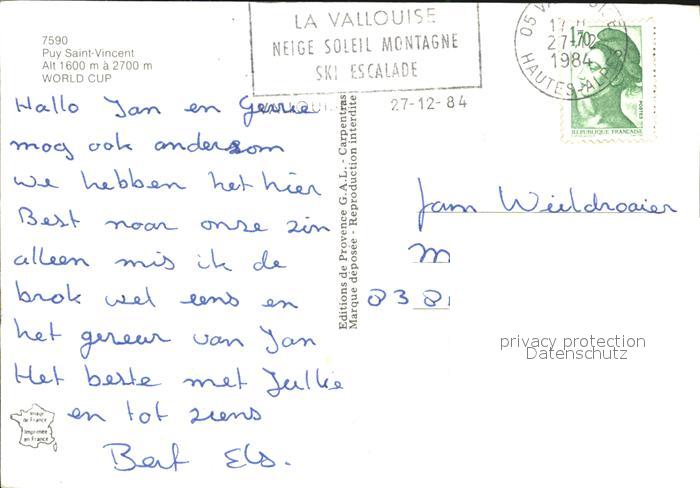 7590
Puy Saint-Vincent
Alt 1600 m à 2700 m
WORLD CUP
LA VALLOUISE
NEIGE SOLEIL MONTAGNE
SKI ESCALADE
27-12-84
05
27-12
1984
HAUTES-ALPES
1,70
POSTES
REPUBLIQUE FRANÇAISE
Hallo Jan en Gerrie
mog ook andersom
we hebben het hier
Best naar onze zin
alleen mis ik de
brok wel eens en
het gereur van Jan
Het beste met Jullie
en tot ziens
Bert Els.
Editions de Provence G.A.L. - Carpentras
Marque déposée - Reproduction interdite
image de France
Imprimée en France
Jam Wieldraaier
M
838
privacy protection
Datenschutz